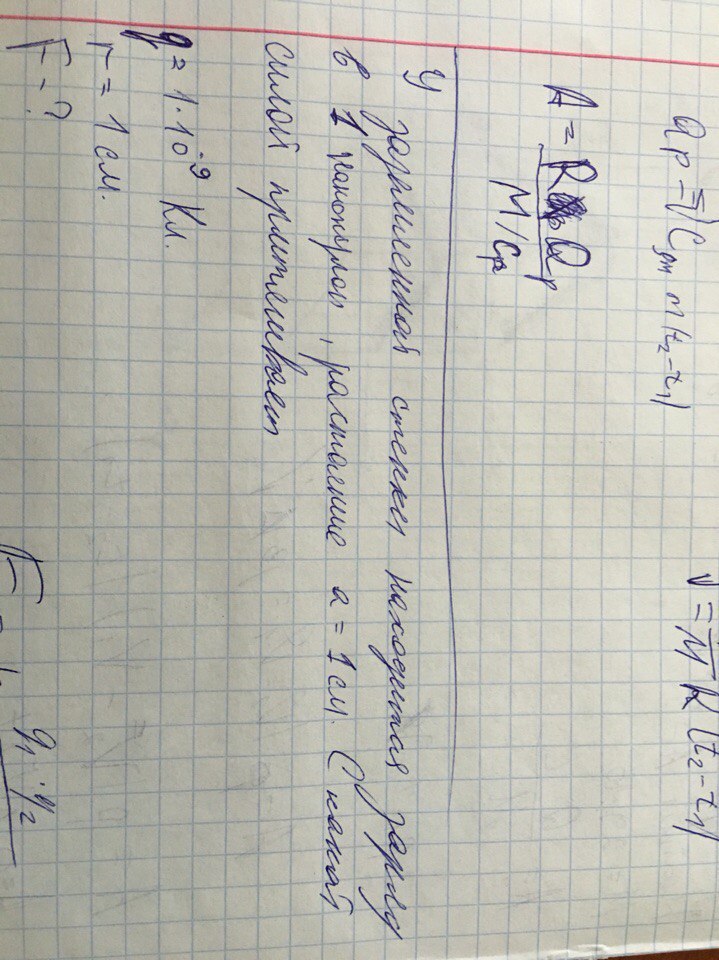 Qp = √Cдп m(t₂-t₁)
ν = M R (t₂-t₁)
A = R Qp
M/Cp
У заряженной стенки находится заряд
в 1 нанокулон, растояние a = 1 см. С какой
силой притягивает
q = 1·10⁻⁹ Кл.
r = 1 см.
F = ?
q₁·q₂
F =